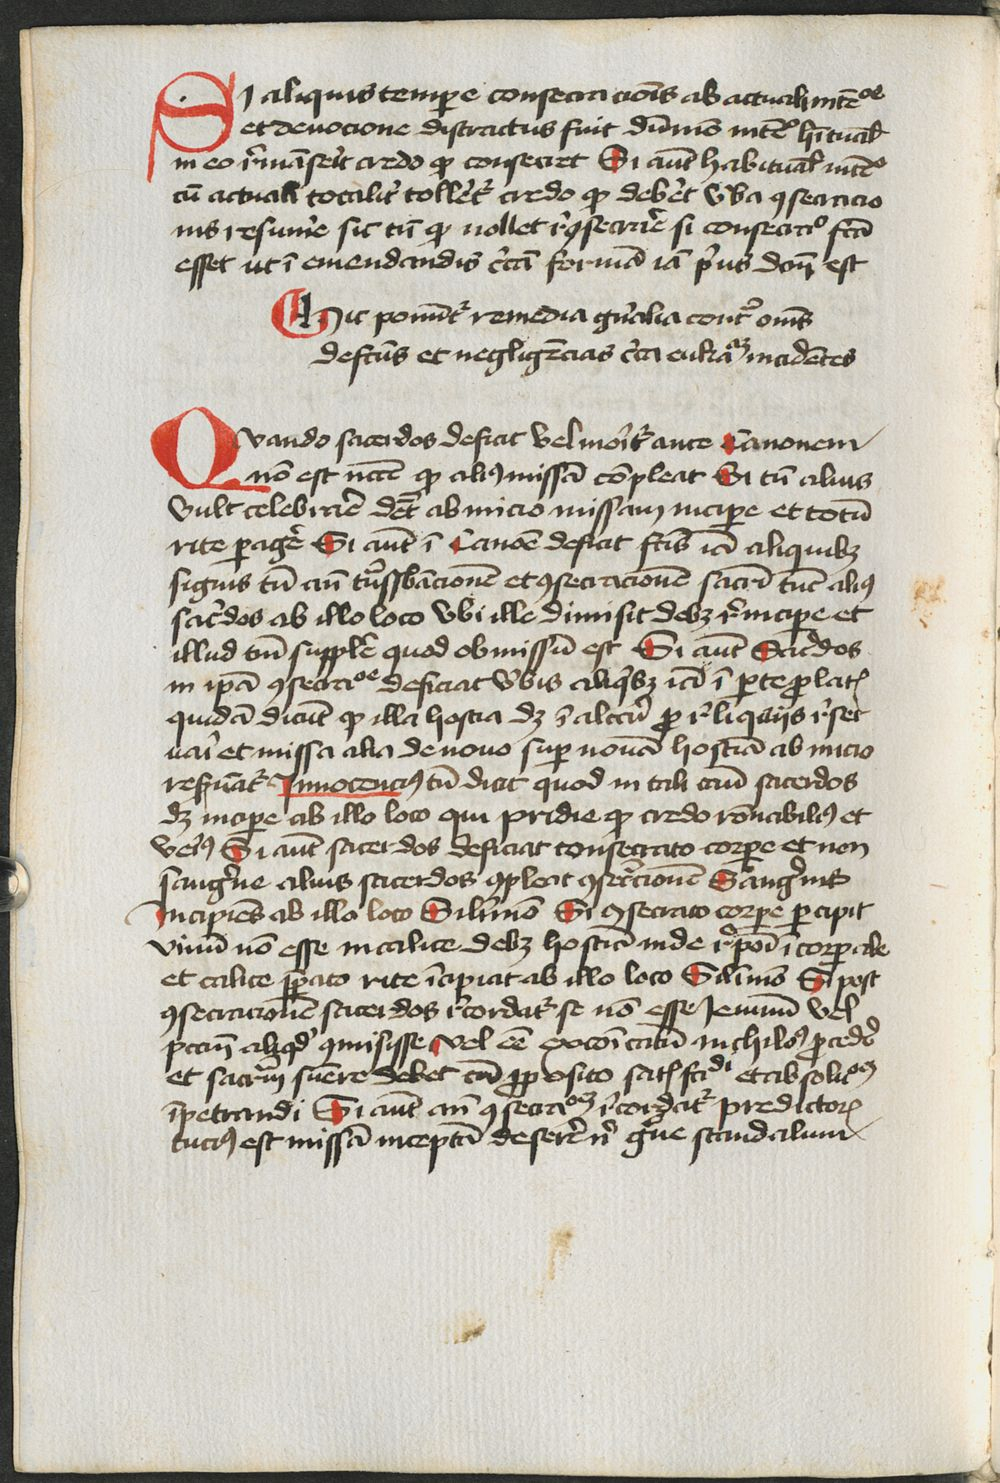 Si aliquis tempore consecracionis ab actuali intencoe
et devocione distractus fuit dummo intenco hituals
in eo rmanserit credo qp consecret Si aut habituals intenco
cu actuali totaliter tolleretr credo qp deberet vba 9secracio
nis resumere sic tn qp nollet r9secrare si consecraco fcta
esset ut i emendandis circa forma ia prius dcm est
Hic ponuntr remedia gnralia contra omnes
defectus et negligencias circa eukariam incidentes
Quando sacerdos deficit vel moritr ante Canonem
no est ncce qp alius missa compleat Si tn alius
vult celebrare debet ab inicio missam incipere et totu
rite peragere Si aut i Canone deficiat fctis ia aliquibz
signis tn an transsbacionem et 9secracionem sacri tuc alius
sacerdos ab illo loco vbi ille dimisit debz rincipere et
illud tm supplere quod obmissum est Si aut Sacerdos
in ipa 9secracoe deficiat verbis aliqbz ia i parte prolatis
quida dicut qp illa hostia dz i altari pro reliquiis reser
vari et missa alia de novo super nova hostia ab inicio
resumatr Innocencius tn dicit quod in tali casu sacerdos
dz incipere ab illo loco qui pridie qp credo roncabilius et
verius Si aut sacerdos deficiat consecrato corpore et non
sanguine alius sacerdos 9pleat 9secracionem Sanguinis
Incipiens ab illo loco Similimo Si 9secrato corpore percipit
vinum no esse in calice debz hostia inde reponi i corporale
et calice preparato rite incipiat ab illo loco Similimo Si post
9secracionem sacerdos recordatr se no esse Jeiunum vel
pctm aliqd 9misisse vel ee excoicatum nichilo9 procedere
et sacrm sumere debet cu proposito satisfcadi et absolucoem
impetrandi Si aut an 9secracoem recordatr predictorum
tucius est missa incepta deserere nisi grave scandalum